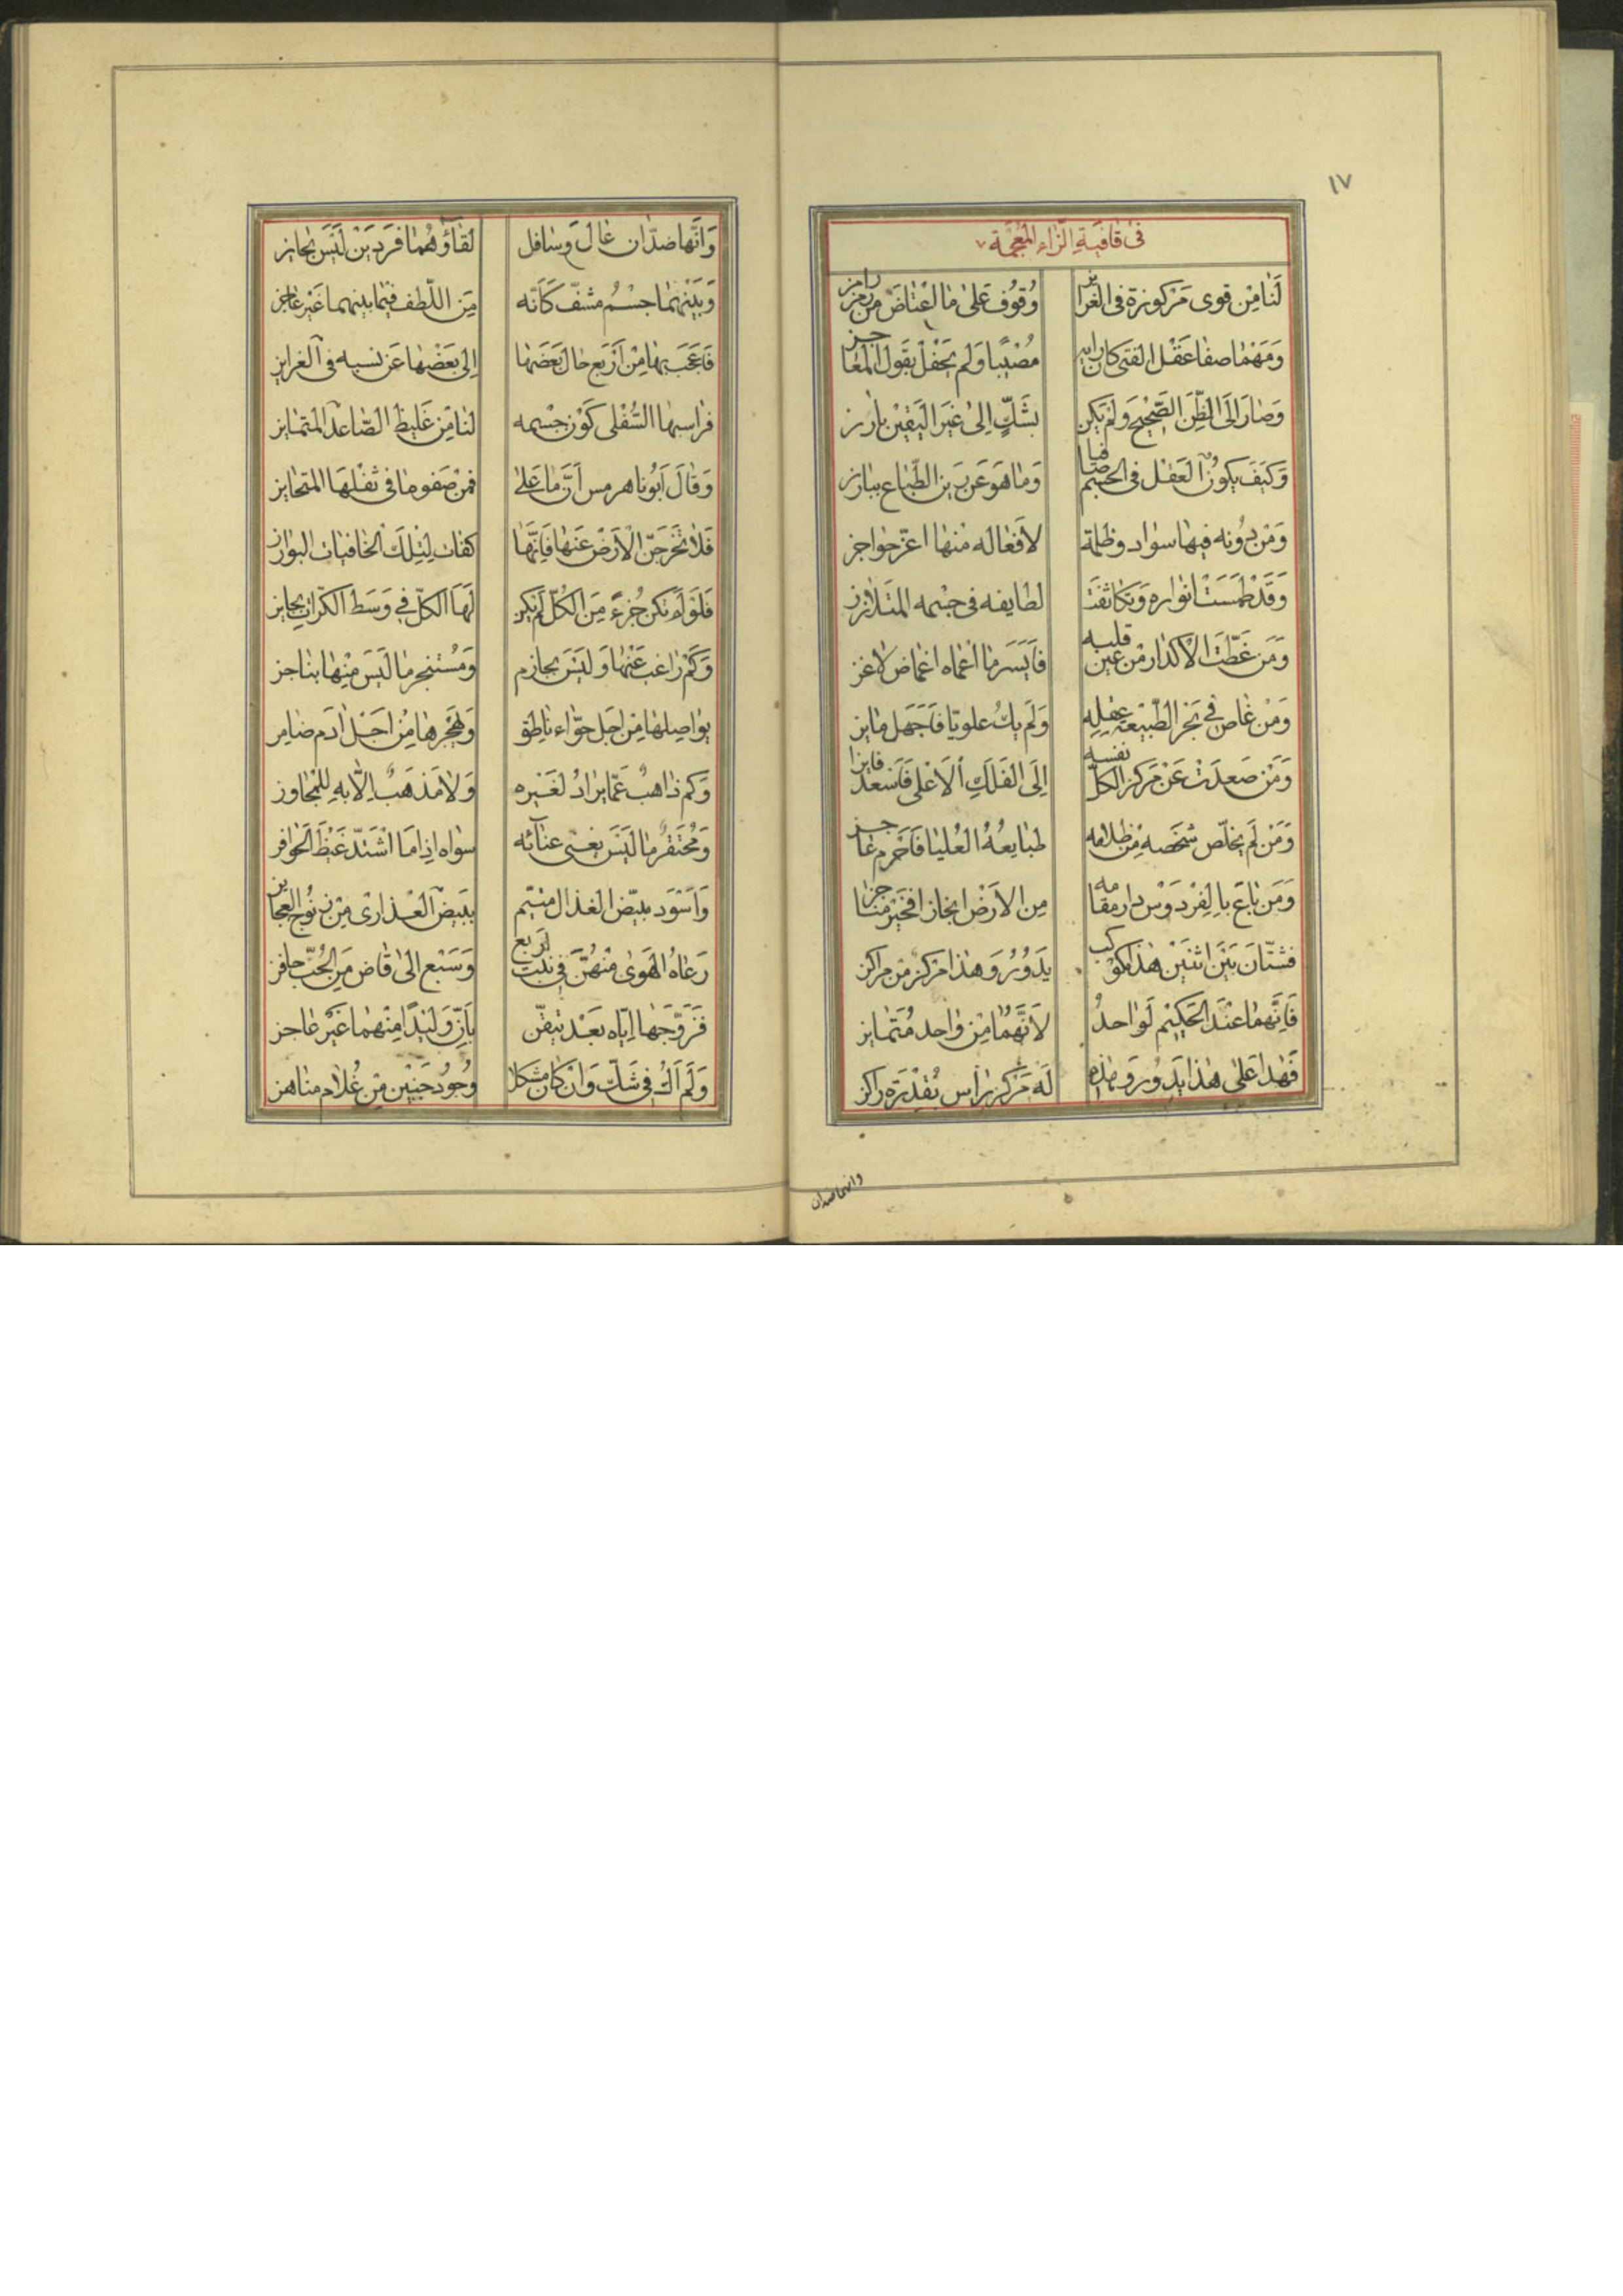 ١٧
فى قافية الزاء المعجمة
لَنا مِن قوى مَركوزة فى الغرايز وُقوُف عَلىٰ ما اعْتاضَ من رمز رامز
وَمَهْما صفا عَقْل الفتى كان رايه مُصْيبًا وَلم يَحْفلْ بقَول المغاجز
وَصٰارَ اِلَى الظِّنِ الصَّحيحِ وَلَمْ يَكن بشَكٍّ اِلىٰ غيَر اليَقيْن بارز
وَكيَفَ يكونُ العَقل فى الجسم صافيا وَما هوَ عَن رَين الطّباع ببارز
وَمَنْ دُونه فيها سواد وظلمة لافعاله منها اعزّ حواجز
وَقَدْ طَمَسَتْ انواره وَتكاثفَتَ لطايفه فى جسمه المتَلازز
وَمَن غَطّتَ الاكدار من عين قلبه فاَيَسَر ما اعماه اغماض لاغز
وَمَنْ غاص فى بَحْر الطّبيْعة عقلِهِ وَلَم يكُ علويّا فَاجَهل مايز
وَمَنْ صَعدَتْ عَنْ مَركز الكلّ نفسه اِلَى الفَلَكِ الاَعْلى فَاَسْعد فايزا
وَمَنْ لَم يخلّص شخَصه مِن ظلامه طبايعُهُ العُليا فَاحَرم عاجز
وَمَن باعَ بالفِرْدوَسْ دار مقامه مِن الاَرْض انجازا فخَيْر مناجز
فشتّان بَيَن اثنيَن هٰذا مكوكب يَدوُرُ وَهٰذا مَركز من مراكز
فَاِنّهما عنْدَ الحَكيْم لَواحدٌ لاَنهَّمُا مِن واحد مُتَمايز
فهَٰذا عَلى هٰذا يَدوُر وَهٰذه لَه مَركز رأس بُقدْرَة راكز
وانهما ضدان
وَانَّهما ضدّان عٰال وَسٰافل لقٰاؤهُما فَردَيَنْ لَيَسَ بجايز
وَبَيَنهَما جسْمُ مشفّ كَاَنّه مِن اللّطف فيما بينهما غَيْر عاجز
فَاعَجَب بهٰا مِنْ اَرْبَع حال بَعَضهٰا اِلى بَعَضْهٰا عَن نسبه فى الغرايز
فراسبهٰا السُّفْلى كَوْن جسْمه لنا مِن غَليظِ الصّاعد المتمايز
وَقالَ اَبُونا هرمس اَنّ ما عَلىٰ فمن صَفوها فى ثفلهَا المتحايز
فَلا تخَرجَنّ الاَرْضَ عَنهٰا فاِنّهَا كفات لِتْلِكَ الخافيات البوارز
فَلوَ لَم تكن جُزءً مِن الكُلّ لَم يكن لَهَا الكلّ فى وَسَط الكرات بحايز
وَكَمْ راغب عَنْها وَليَسَ بحازم وَمُسْتنجز ما ليَسَ مِنْها بناجز
يواصِلهٰا مِن اَجَل حوّاء ناطق وَيَهْجرهٰا مِن اَجَل ادَم ضامز
وَكم ذاهبٌ عَمّا يرادُ لغَيْره وَلا مَذهَبٌ اِلّا بهِ للمُجاوز
وَمُحْتَقرٌ ما ليَسَ يغنى عنآئه سواه اِذا مَا اشْتَدّ غَيْظَ الحوافز
وَاَسْوَد مبيّض القذال متيّم بِبيَض العَذارى مِن زنوج العجايز
رَعاهُ الهَوىٰ منْهُنّ فى بنت اربع وَسَبْع الىٰ قاض مَن الجُبّ حافز
فَزَوَّجَهٰا اِيّاه بَعَد تيقّن بِاَنّ وَليَدًا مِنْهما غَيْر عاجز
وَلَم اَكُ فى شكّ وَانْ كٰان مشكلا وُجُودُ جَنين مِن غُلام مناهز